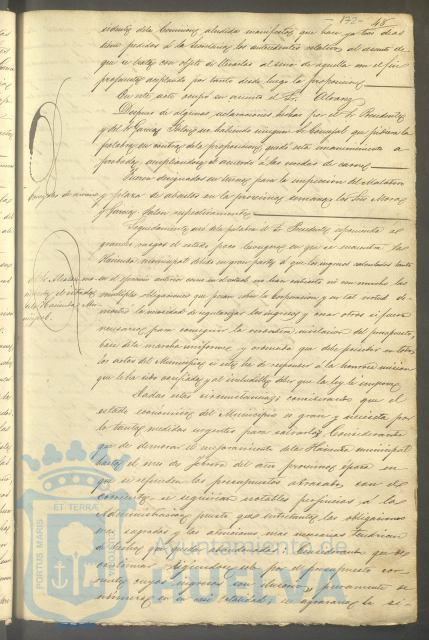 - 172 -
48
sidente de la Comision aludida manifestó que hace ya tres dias
tiene pedidos á la Secretaria los antecedentes relativos al asunto de
que se trata con objeto de llevarlos al seno de aquella con el fin
propuesto aceptando por tanto desde luego la proposicion
En este acto ocupó su asiento el Sr. Alvarez
Despues de algunas aclaraciones hechas por el Sr. Presidente
y del Sr. Garcia y no habiendo ningun Sr. Concejal que pidiera la
palabra en contra de la proposicion, quedó esta unanimemente a
probada, ampliandose el acuerdo á las medias de carnes
Fueron designados en turno para la inspeccion del Matadero
y plaza de abastos en la proxima semana los Sres. Mora
y Garcia respectivamente
Seguidamente uso de la palabra el Sr. Presidente exponiendo á
grandes rasgos el estado poco lisongero en que se encuentra la
Hacienda municipal debido en gran parte á que los ingresos calculados tanto
en el ejercicio anterior como en el actual no han cubierto ni con mucho las
multiples obligaciones que pesan sobre la Corporacion, y en tal virtud de-
mostró la necesidad de regularizar los ingresos y crear otros si fuere
necesario para conseguir la verdadera nivelacion del presupuesto,
base de la marcha uniforme y ordenada que debe presidir en todos
los actos del Municipio si este ha de responder á la honrosa mision
que le ha sido confiada y al ineludible deber que la ley le impone
Dadas estas circunstancias y considerando que el
estado economico del Municipio es grave y necesita por
lo tanto medidas urgentes para salvarlo; Considerando
que de demorar el mejoramiento de la Hacienda municipal
hasta el mes de Febrero del año proximo época en
que se refunden los presupuestos
corriente, se seguirian notables perjuicios á la
Administracion, puesto que entretanto las obligaciones
mas sagradas y las atenciones mas necesarias tendrian
de hecho que quedar abandonadas; Considerando que de
continuar rigiendose esta por el presupuesto cor-
riente cuyos ingresos son ilusorios, puramente
numericos en su casi totalidad, se agravaria la si-
PORTUS MARIS
ET TERRÆ
Ayuntamiento de
HUELVA